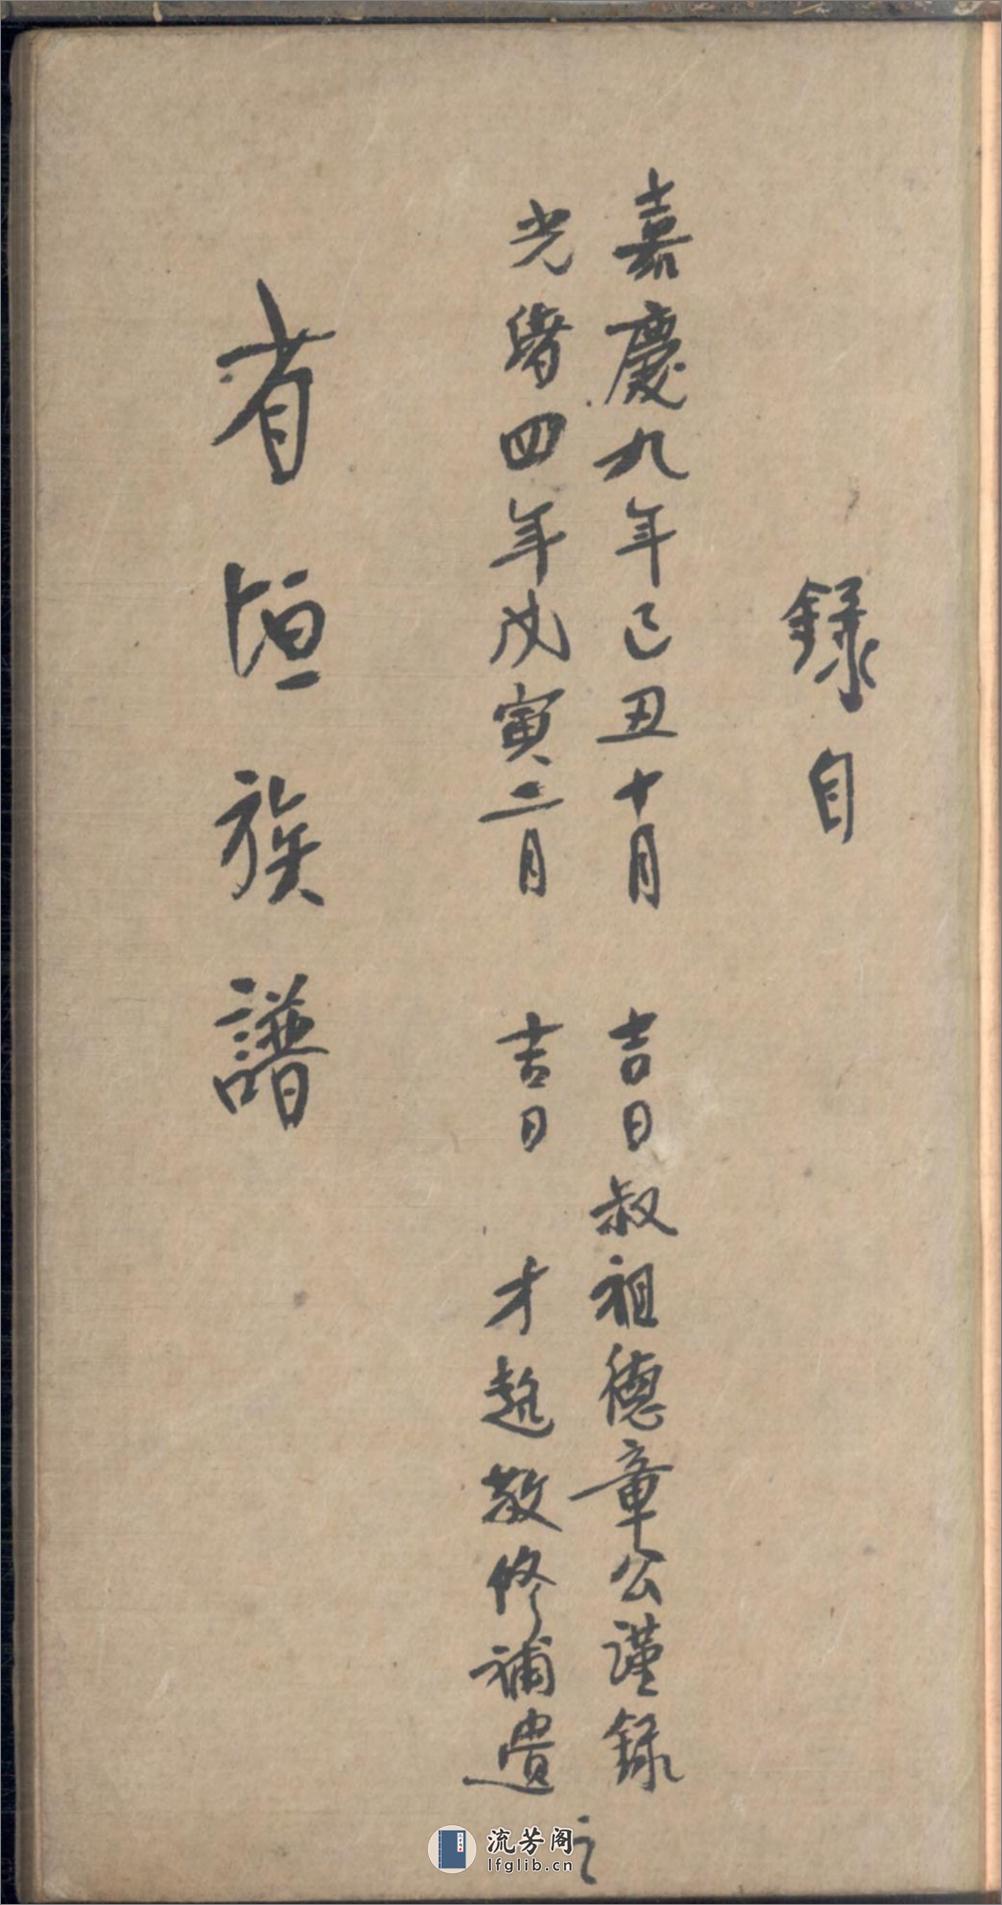 錄自
嘉慶九年己丑十月 吉日叔祖德章公謹錄
光緒四年戊寅二月 吉日 才趁敬修補遺之
省垣族譜
流芳阁
lfglib.cn